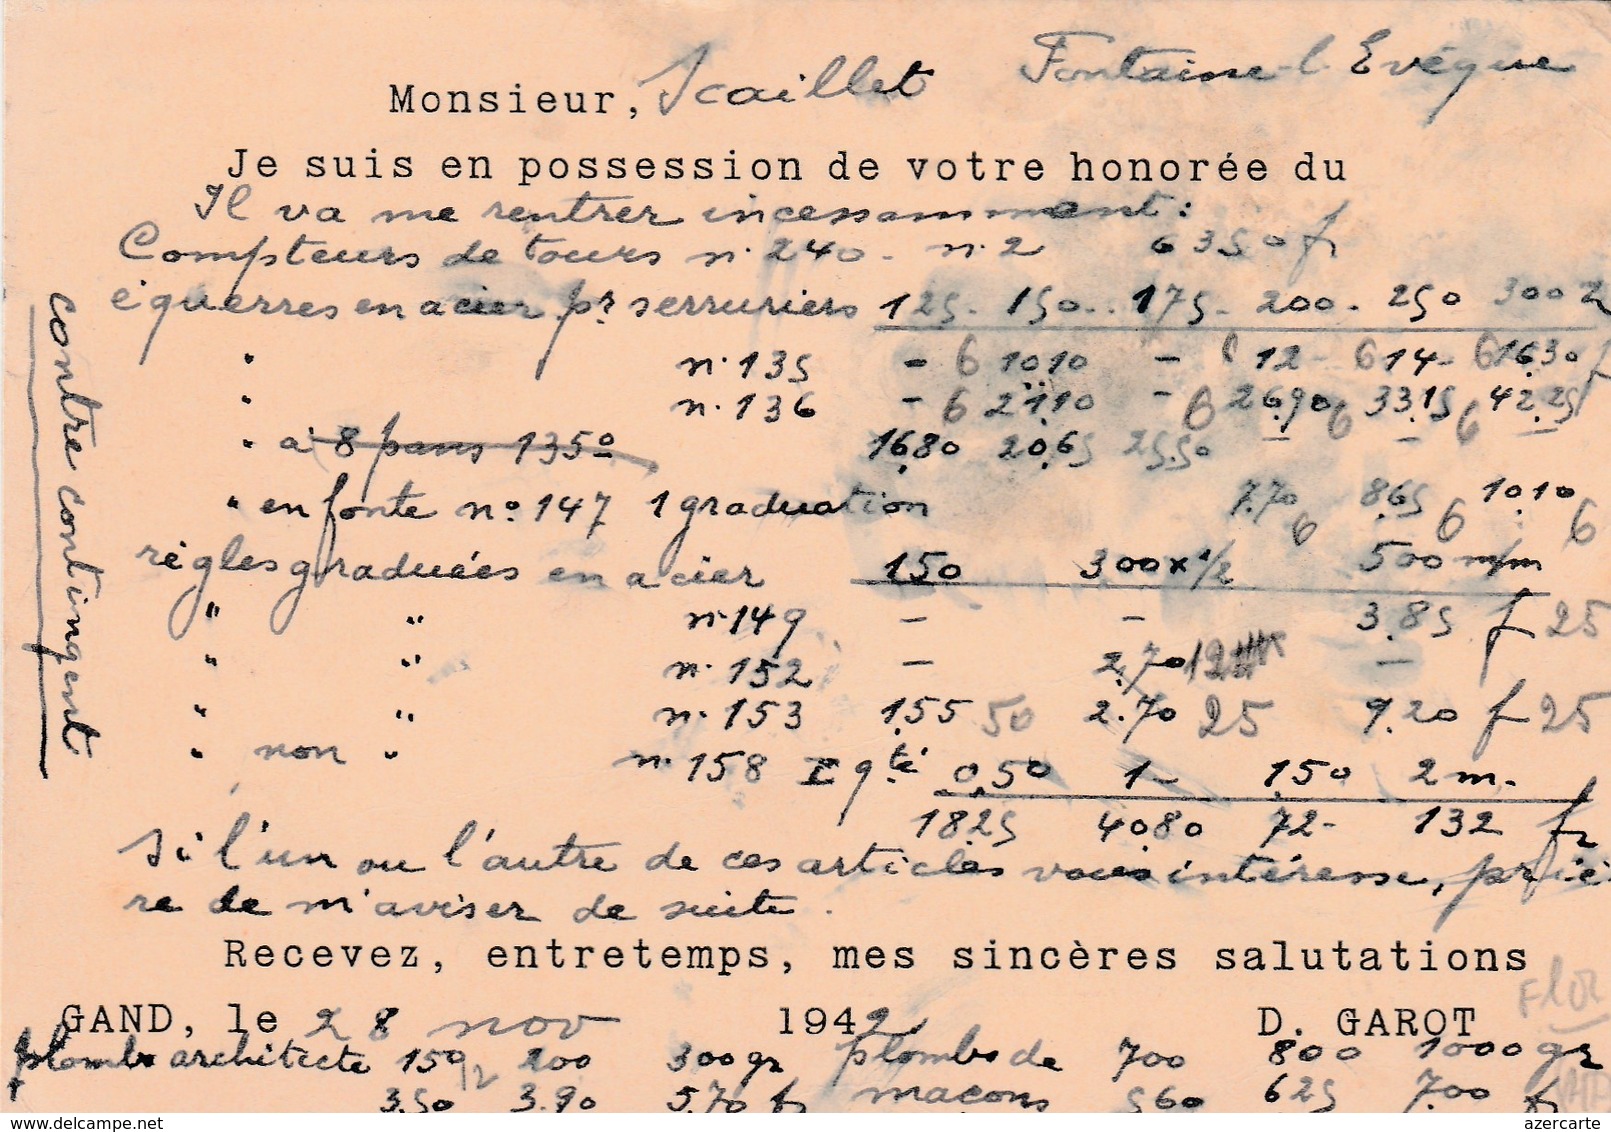 Monsieur, Scaillet Fontaine-l-Evêque
Je suis en possession de votre honorée du
Il va me rentrer incessamment :
Compteurs de tours n. 240 - n. 2 6350 fr
équerres en acier pr serruriers 125 - 150 - 175 - 200 - 250 300
" n. 135 - 6 10.10 - 6 12 - 6 14 - 6 16.30 f
" n. 136 - 6 21.10 - 6 26.90 6 33.15 6 42.25
" à 8 pans 135° 16.80 20.65 25.50 - - -
" en fonte no. 147 1 graduation 7.70 6 8.65 6 10.10 6
règles graduées en acier 150 300 x 1/2 500 m/m
" " n. 149 - - 3.85 f 25
" " n. 152 - 2.70 12 -
" " n. 153 1.55 50 2.70 25 9.20 f 25
" non " n. 158 I qté 0,50 1 - 1,50 2 m.
18.25 40.80 72 - 132 fr
Si l'un ou l'autre de ces articles vous intéresse, priè
re de m'aviser de suite.
contre contingent
Recevez, entretemps, mes sincères salutations
GAND, le 28 nov 1942 D. GAROT
plombs architecte 150 200 300 gr plombs de 700 800 1000 gr
3.50 3.90 5.70 fr macons 560 625 700 fr
delcampe.net
azercarte